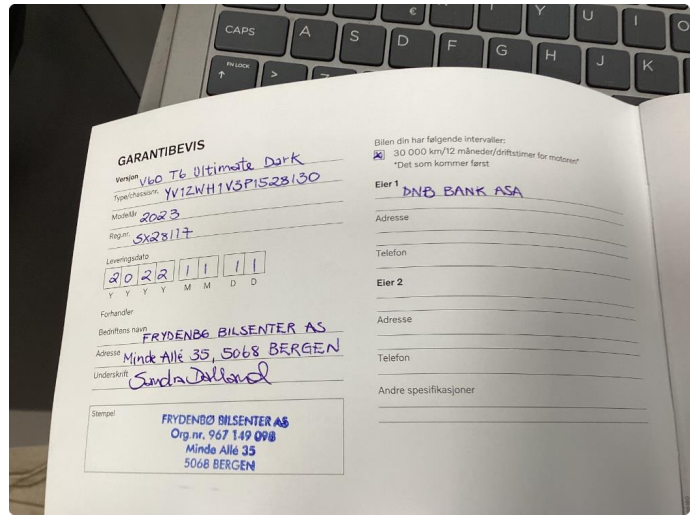 €
Y U I O
CAPS A S D F G H J K
FN LOCK >
GARANTIBEVIS
Versjon V60 T6 Ultimate Dark
Type/chassisnr. YV1ZWH1V3P1528130
Modellår 2023
Reg.nr. SX28117
Leveringsdato
2 0 2 2 1 1 1 1
Y Y Y Y M M D D
Forhandler
Bedriftens navn FRYDENBØ BILSENTER AS
Adresse Minde Allé 35, 5068 BERGEN
Underskrift
Stempel
FRYDENBØ BILSENTER AS
Org.nr. 967 149 098
Minde Allé 35
5068 BERGEN
Bilen din har følgende intervaller:
30 000 km/12 måneder/driftstimer for motoren*
*Det som kommer først
Eier 1 DNB BANK ASA
Adresse
Telefon
Eier 2
Adresse
Telefon
Andre spesifikasjoner